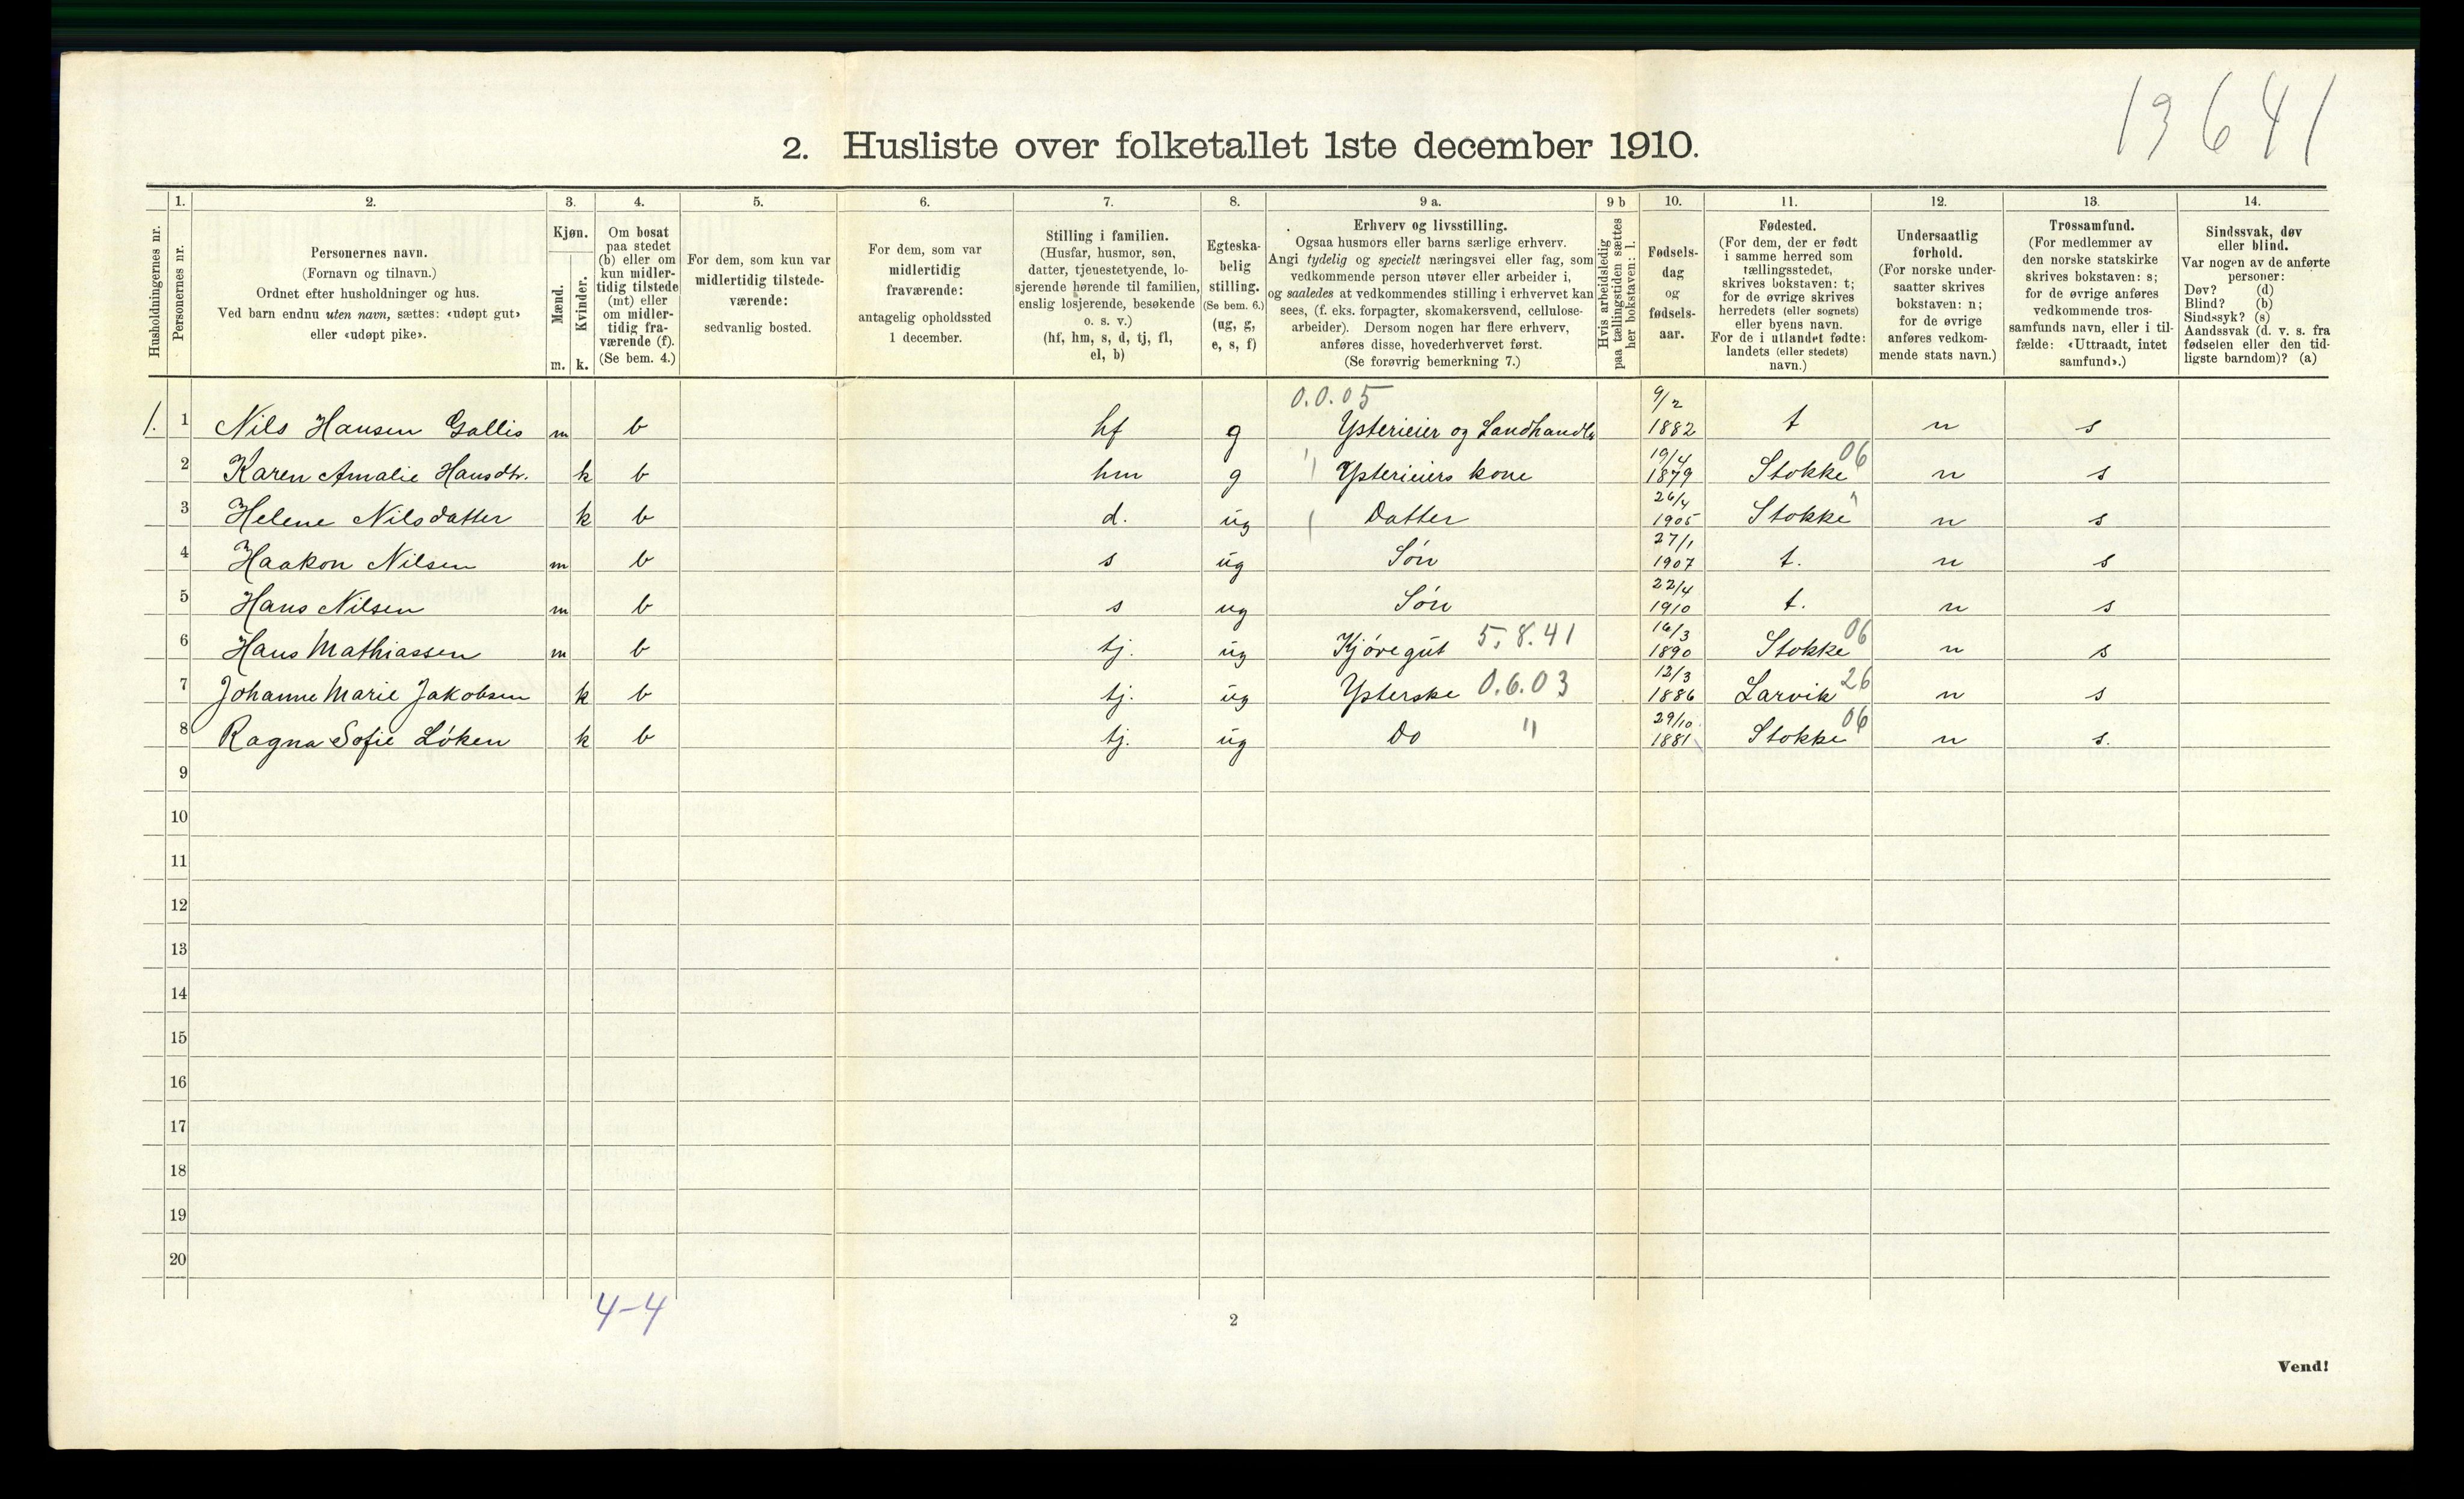 13641
2. Husliste over folketallet 1ste december 1910.
Husholdningernes nr.
1. Personernes nr.
2. Personernes navn. (Fornavn og tilnavn.) Ordnet efter husholdninger og hus. Ved barn endnu uten navn, sættes: «udøpt gut» eller «udøpt pike».
3. Kjøn. Mænd. m. Kvinder. k.
4. Om bosat paa stedet (b) eller om kun midlertidig tilstede (mt) eller om midlertidig fraværende (f). (Se bem. 4.)
5. For dem, som kun var midlertidig tilstedeværende: sedvanlig bosted.
6. For dem, som var midlertidig fraværende: antagelig opholdssted 1 december.
7. Stilling i familien. (Husfar, husmor, søn, datter, tjenestetyende, losjerende hørende til familien, enslig losjerende, besøkende o. s. v.) (hf, hm, s, d, tj, fl, el, b)
8. Egteskabelig stilling. (Se bem. 6.) (ug, g, e, s, f)
9 a. Erhverv og livsstilling. Ogsaa husmors eller barns særlige erhverv. Angi tydelig og specielt næringsvei eller fag, som vedkommende person utøver eller arbeider i, og saaledes at vedkommendes stilling i erhvervet kan sees, (f. eks. forpagter, skomakersvend, cellulosearbeider). Dersom nogen har flere erhverv, anføres disse, hovederhvervet først. (Se forøvrig bemerkning 7.)
9 b Hvis arbeidsledig paa tællingstiden sættes her bokstaven: l.
10. Fødselsdag og fødselsaar.
11. Fødested. (For dem, der er født i samme herred som tællingsstedet, skrives bokstaven: t; for de øvrige skrives herredets (eller sognets) eller byens navn. For de i utlandet fødte: landets (eller stedets) navn.)
12. Undersaatlig forhold. (For norske undersaatter skrives bokstaven: n; for de øvrige anføres vedkommende stats navn.)
13. Trossamfund. (For medlemmer av den norske statskirke skrives bokstaven: s; for de øvrige anføres vedkommende trossamfunds navn, eller i tilfælde: «Uttraadt, intet samfund».)
14. Sindssvak, døv eller blind. Var nogen av de anførte personer: Døv? (d) Blind? (b) Sindssyk? (s) Aandssvak (d. v. s. fra fødselen eller den tidligste barndom)? (a)
0.0.05
1. 1 Nils Hansen Gallis m b hf g Ysterieier og Landhandler 9/2 1882 t n s
2 Karen Amalie Hansdtr. k b hm g " Ysterieiers kone 19/4 1879 Stokke 06 n s
3 Helene Nilsdatter k b d. ug Datter 26/4 1905 Stokke " n s
4 Haakon Nilsen m b s ug Søn 27/1 1907 t. n s
5 Hans Nilsen m b s ug Søn 22/4 1910 t. n s
6 Hans Mathiassen m b tj. ug Kjøregut 5.8.41 16/3 1890 Stokke 06 n s
7 Johanne Marie Jakobsen k b tj. ug Ysterske 0.6.03 12/3 1886 Larvik 26 n s
8 Ragna Sofie Løken k b tj. ug Do " 29/10 1881 Stokke 06 n s.
9
10
11
12
13
14
15
16
17
18
19
20
4-4
2
Vend!